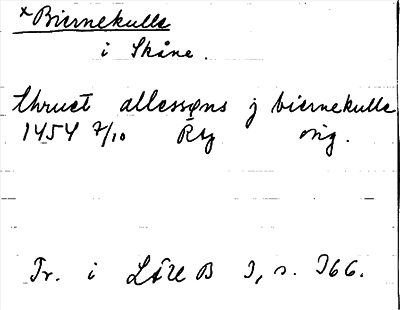 ×Biernekulle
i Skåne.
thruet allessøns j biernekulle
1454 7/10 Rty orig.
Tr. i LÄU B 3, s. 366.